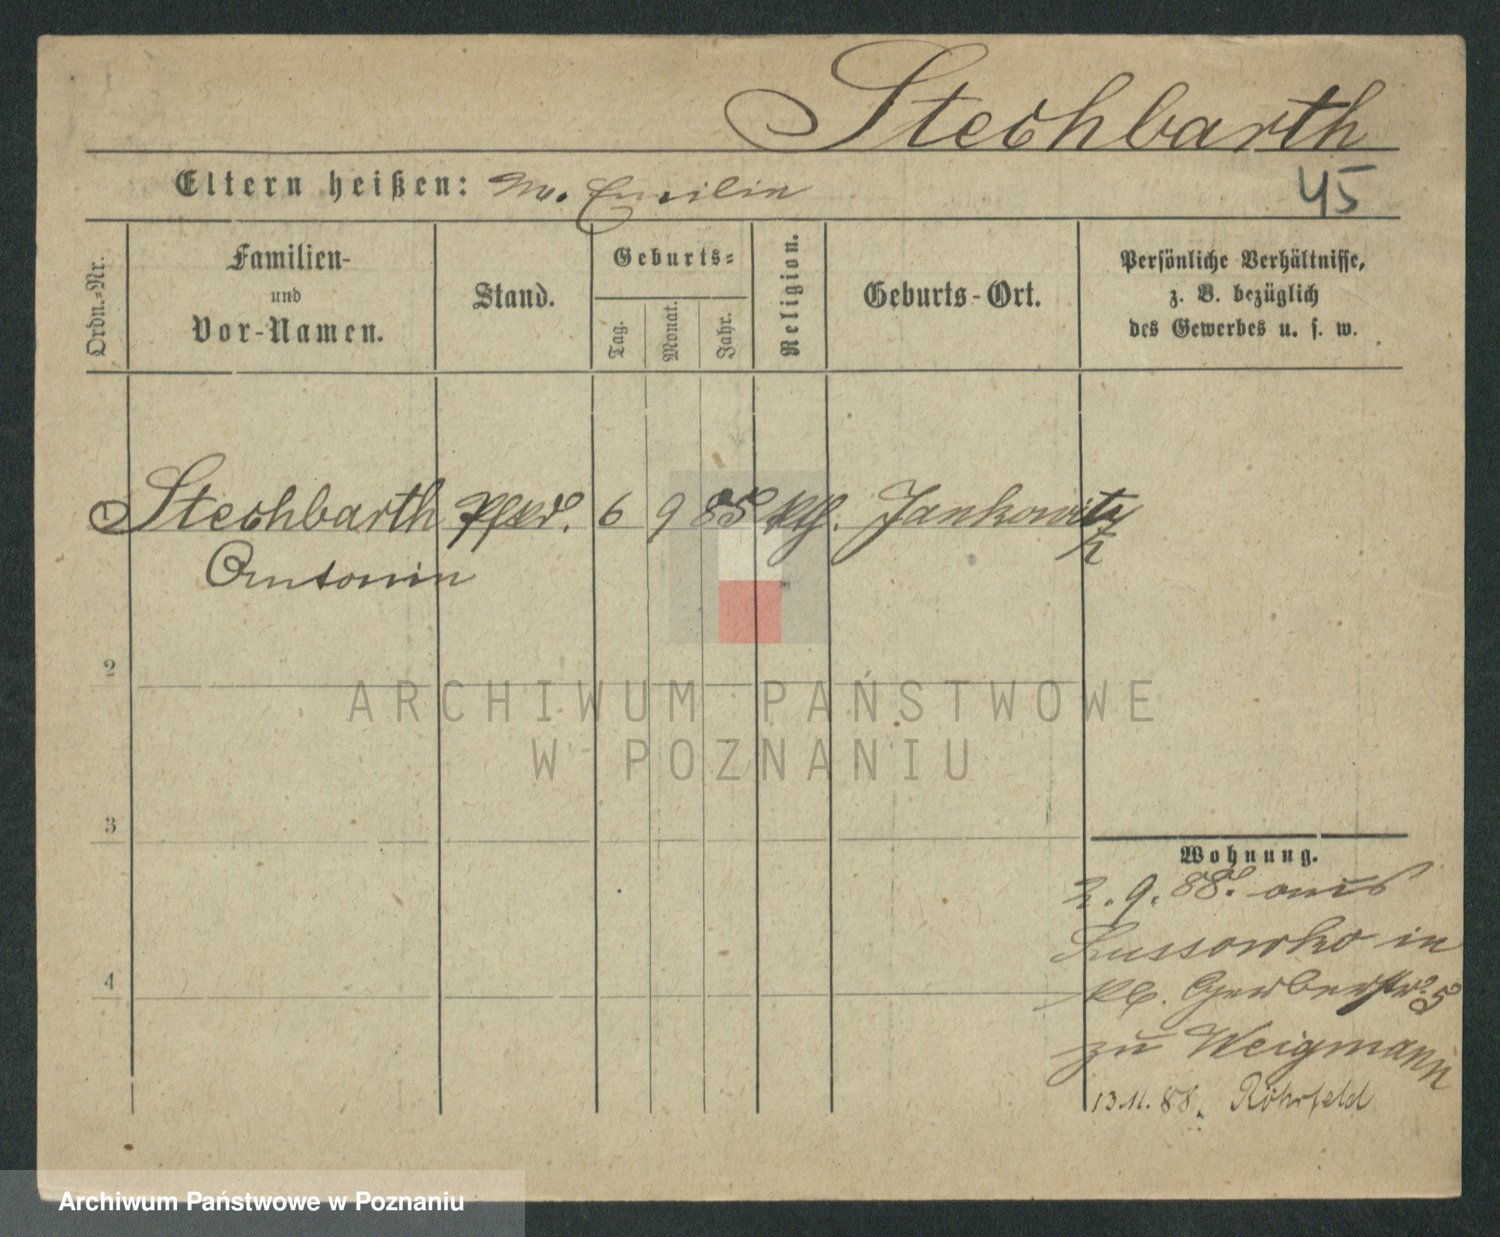 Stechbarth
Eltern heißen: M. Emilie
45
Ordn.-Nr.
Familien-
und
Vor-Namen.
Stand.
Geburts-
Tag.
Monat.
Jahr.
Religion.
Geburts-Ort.
Persönliche Verhältnisse,
z. B. bezüglich
des Gewerbes u. s. w.
1 Stechbarth Pfkd. 6 9 85 kth. Jankowitz
Antonie
2
ARCHIWUM PAŃSTWOWE
W POZNANIU
3
Wohnung.
2. 9. 88. aus
Lussowko in
Kl. Gerberstr. 5
zu Weigmann
4
13.11.88. Röhrfeld
Archiwum Państwowe w Poznaniu